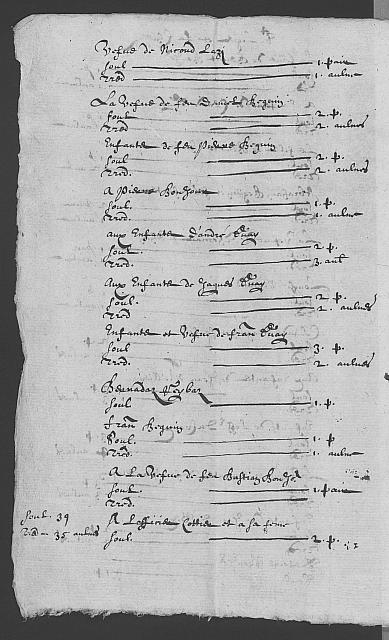 Vefue de Nicoud
soul 1. pair
Tred 1. aulne
La Vefue de feu Daniel Beguin
soul 2. p.
Tred 2. aulnes
Enfants de feu Pierre Beguin
soul 2. p.
Tred. 2. aulnes
A Pierre Bonhome
soul. 1. p.
Tred. 1. aulne
aux Enfants d'andre Vuay
soul. 2. p.
Tred. 3. aul
Aux Enfants de Jaques Vuay
soul. 2. p.
Tred 2. aulnes
Enfants et Vefue de fran Vuay
soul 3. p.
Tred. 2. aulnes
soul 1. p.
fran Beguin
soul. 1. p
Tred. 1. aulne
A La Vefue de feu Bastian
soul. 1. pair
Tred.
soul. 39
Tred 35 aulnes
A Lofficier et a sa feme
soul. 2. p.